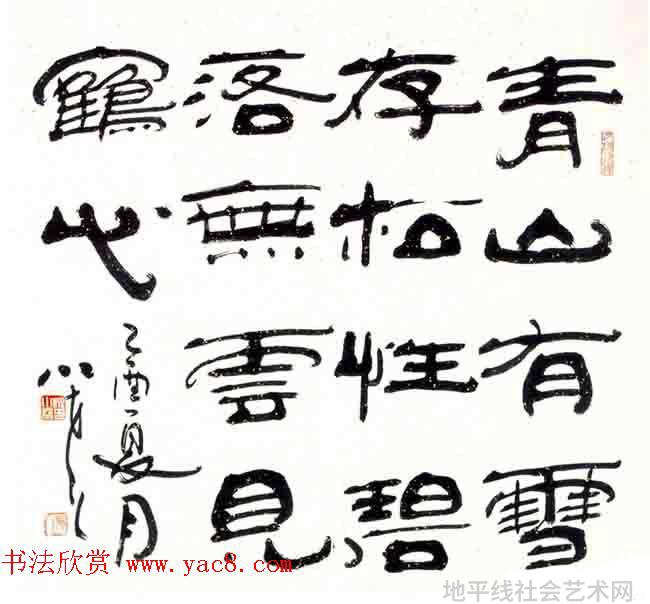 青山有雪
存松性碧
落無雲見
鶴心
乙酉夏月
书法欣赏 www.yac8.com
地平线社会艺术网